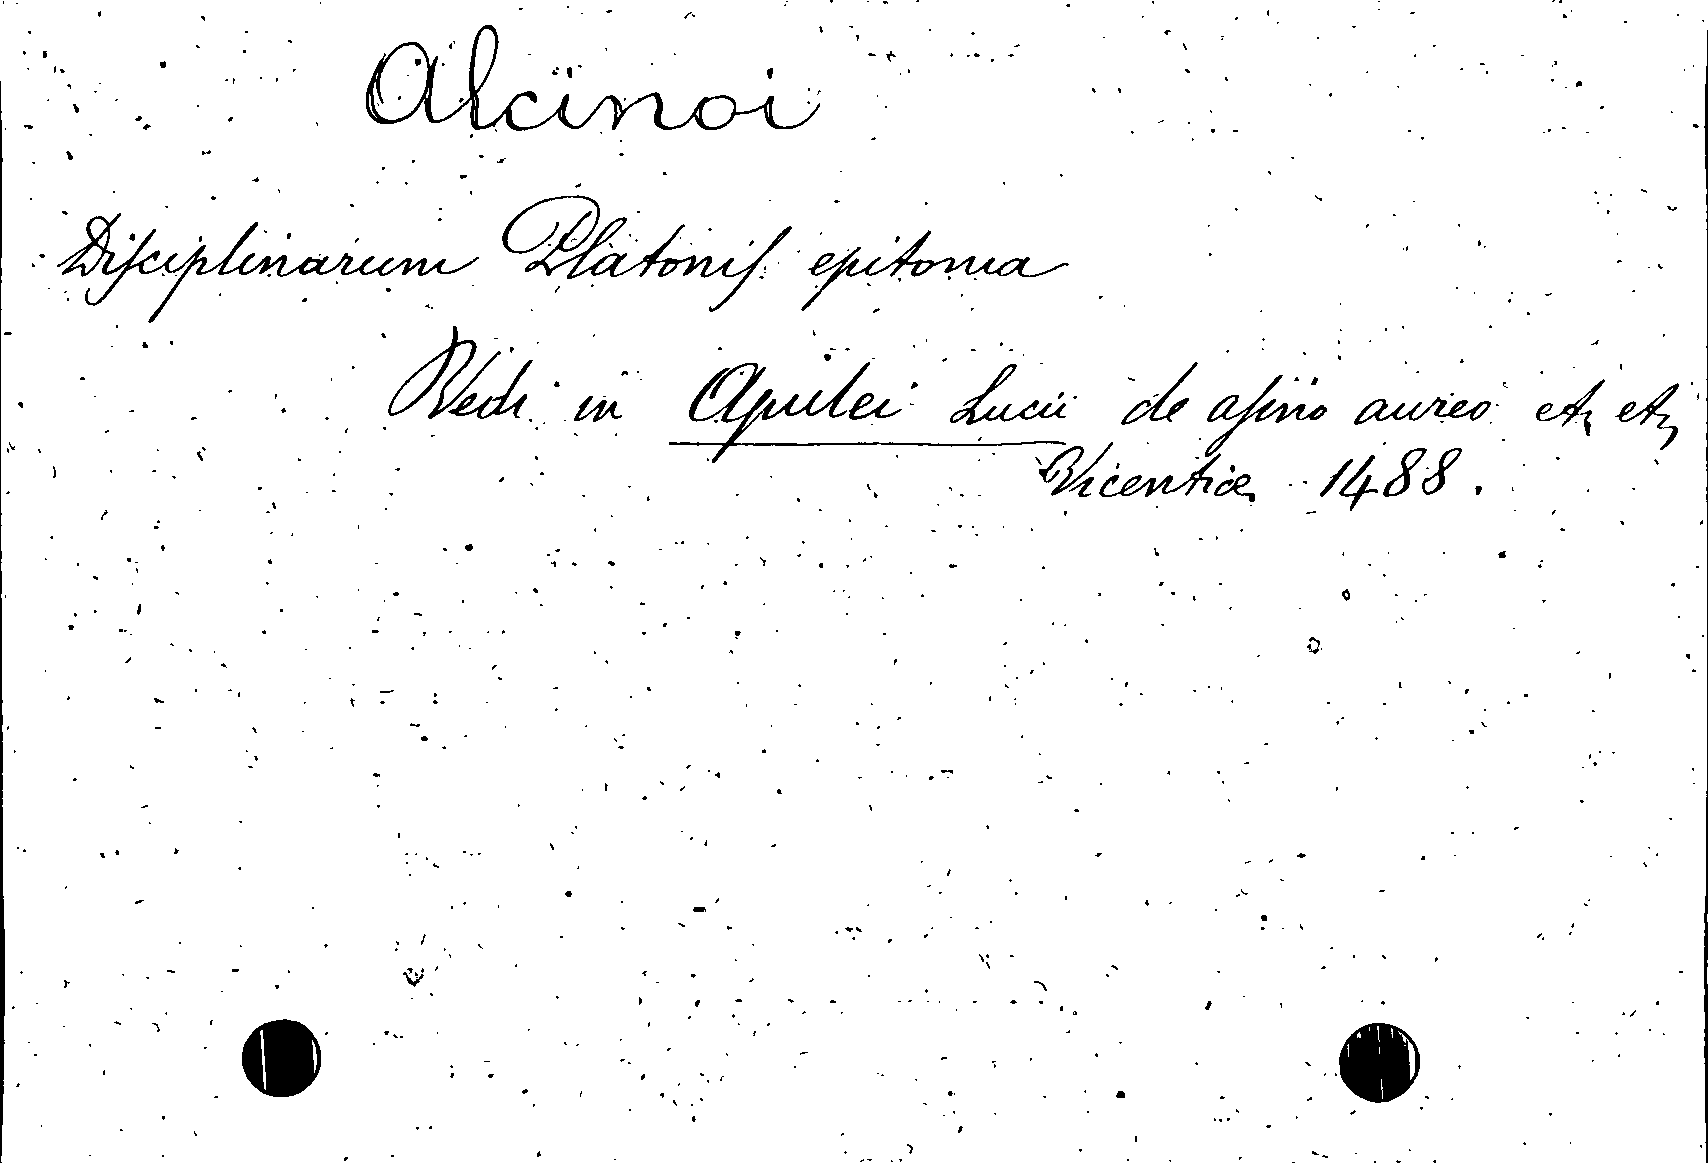 Alcinoi
Disciplinarum Platonis epitoma
Vedi in Apulei Lucii de asino aureo etc etc
Vicentiae 1488.